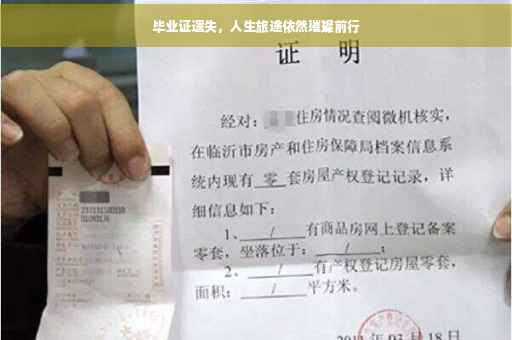 毕业证遗失，人生旅途依然璀璨前行
证 明
经对：住房情况查阅微机核实，
在临沂市房产和住房保障局档案信息系
统内现有 零 套房屋产权登记记录，详
细信息如下：
1、 / 有商品房网上登记备案
零套，坐落位于： / ；
2、 / 有产权登记房屋零套，
面积： / 平方米。
03月18日